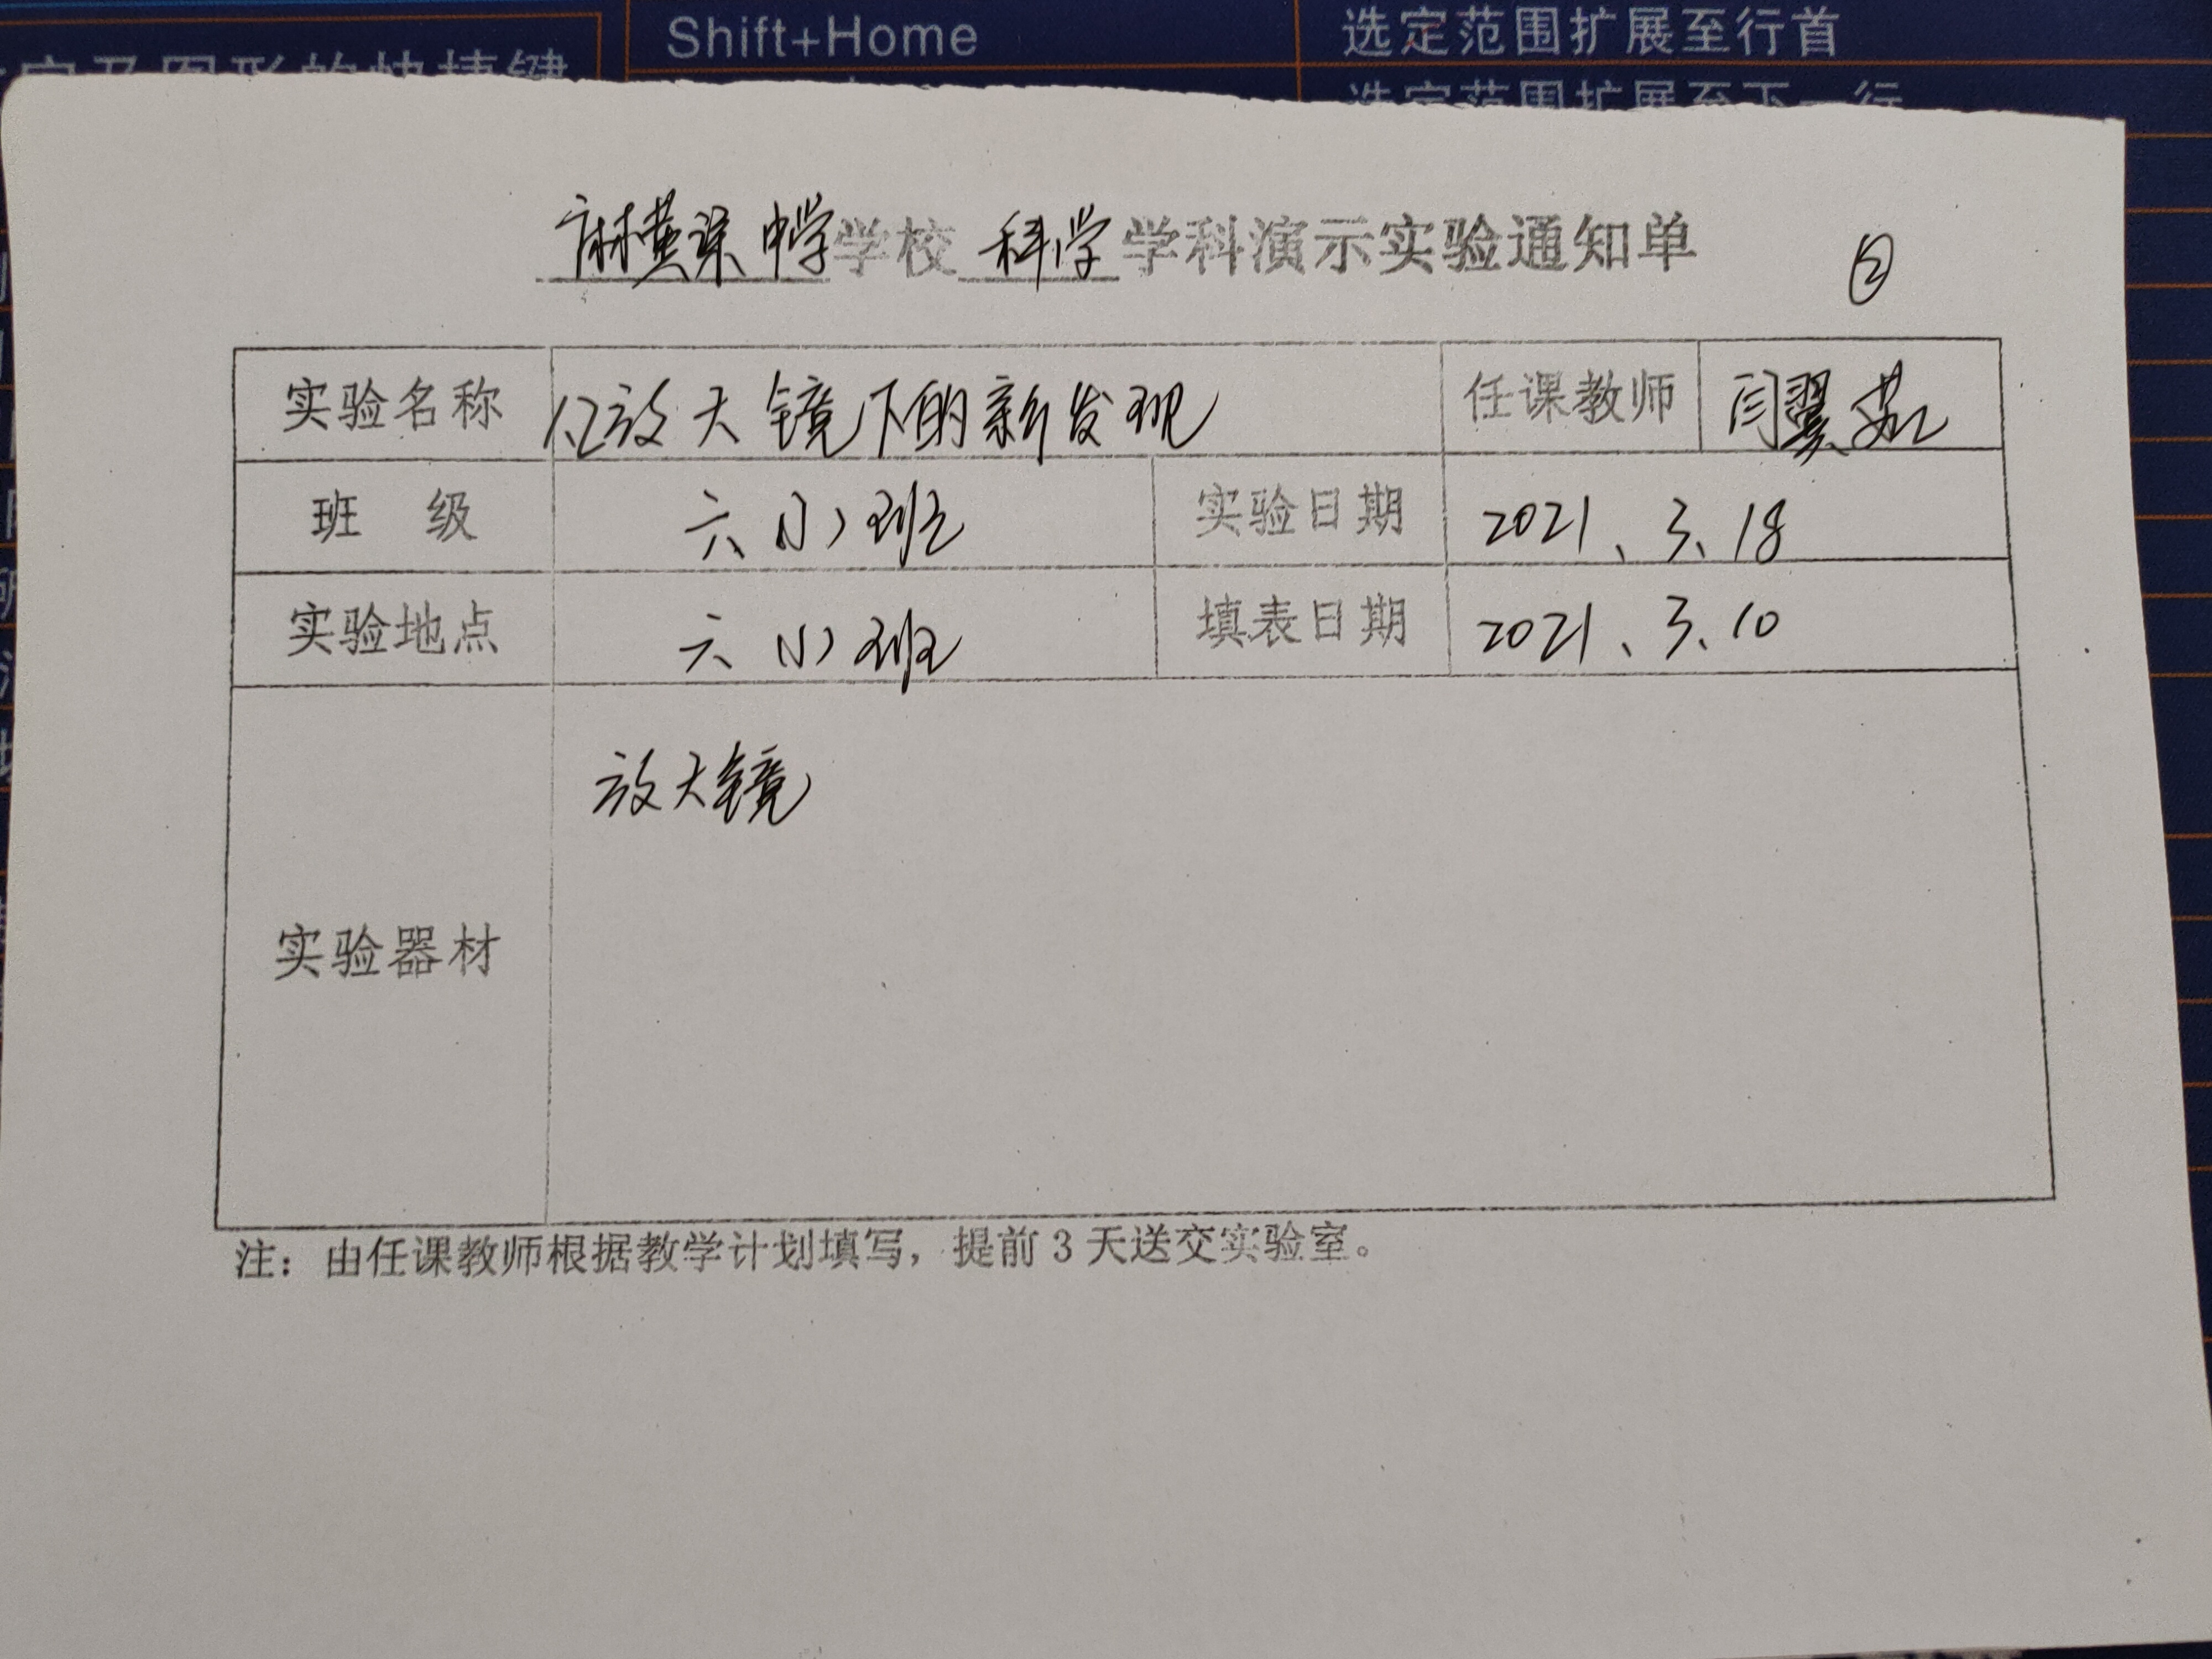 Shift+Home 选定范围扩展至行首
选定范围扩展至下一行
麻黄梁中学学校 科学 学科演示实验通知单 ②
实验名称 1.2放大镜下的新发现 任课教师 闫翠
班 级 六(1)班 实验日期 2021.3.18
实验地点 六(1)班 填表日期 2021.3.10
实验器材 放大镜
注：由任课教师根据教学计划填写，提前3天送交实验室。